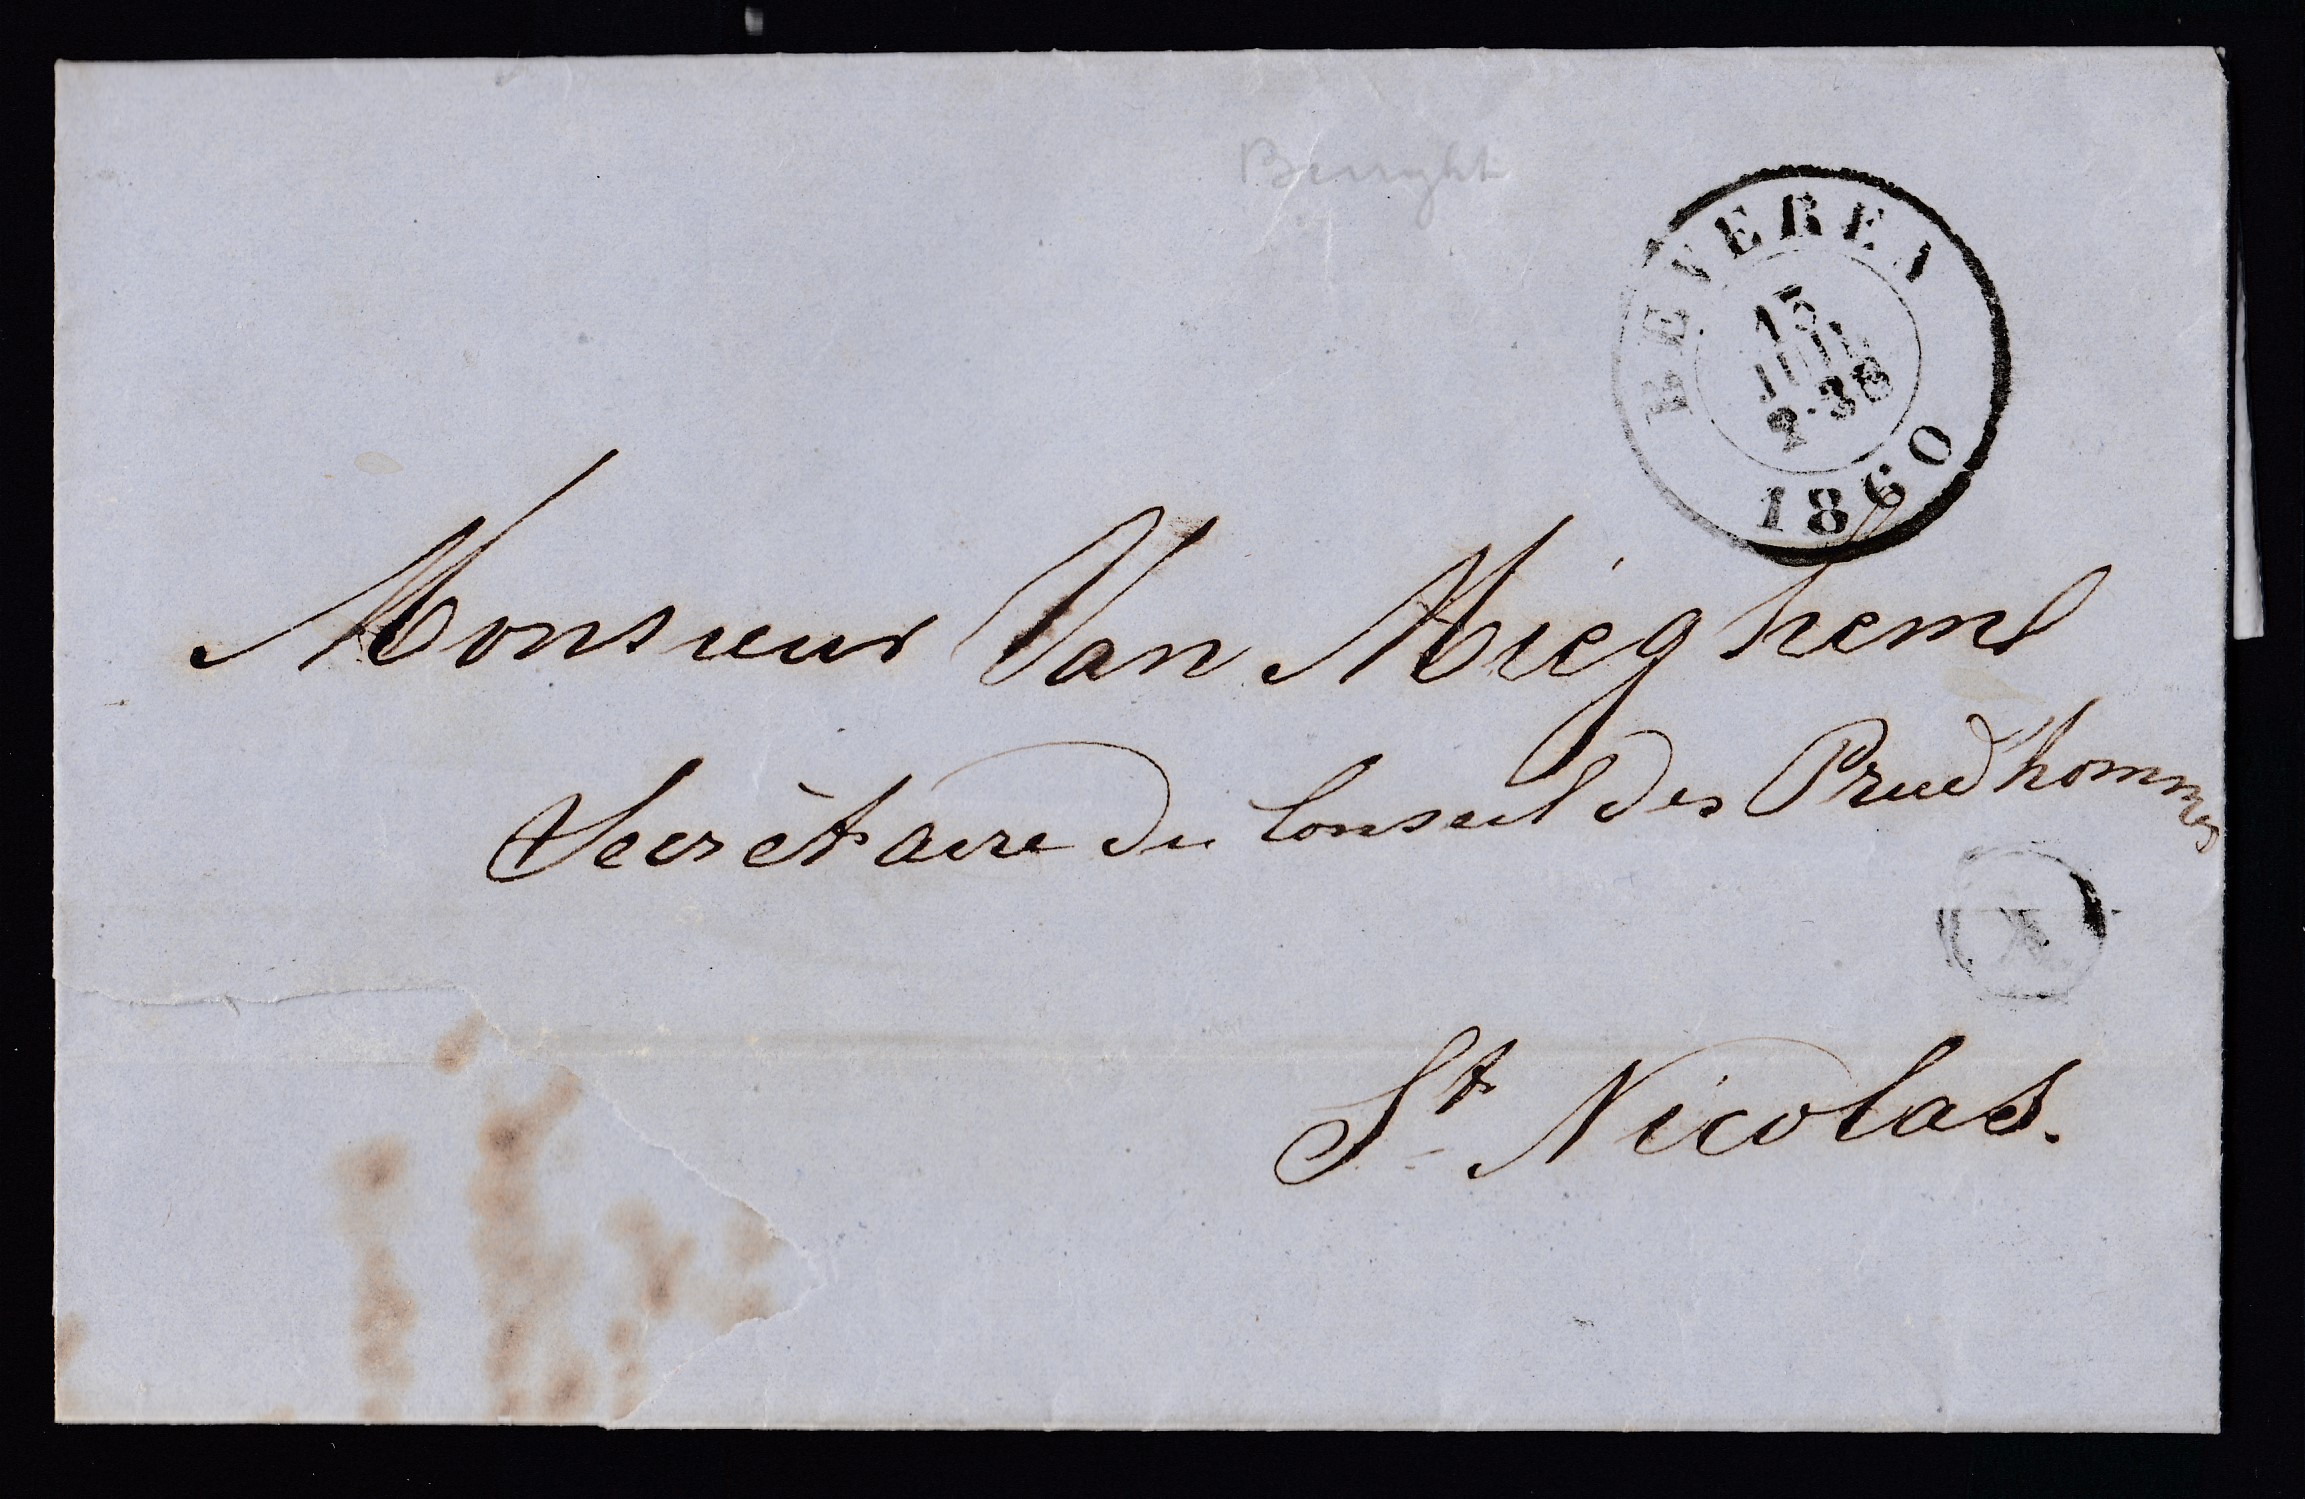 BEVEREN
15
JUIL
2·3S
1860
Monsieur Van Mieghem
Secrètaire du Conseil des Prud'hommes
X
St Nicolas.